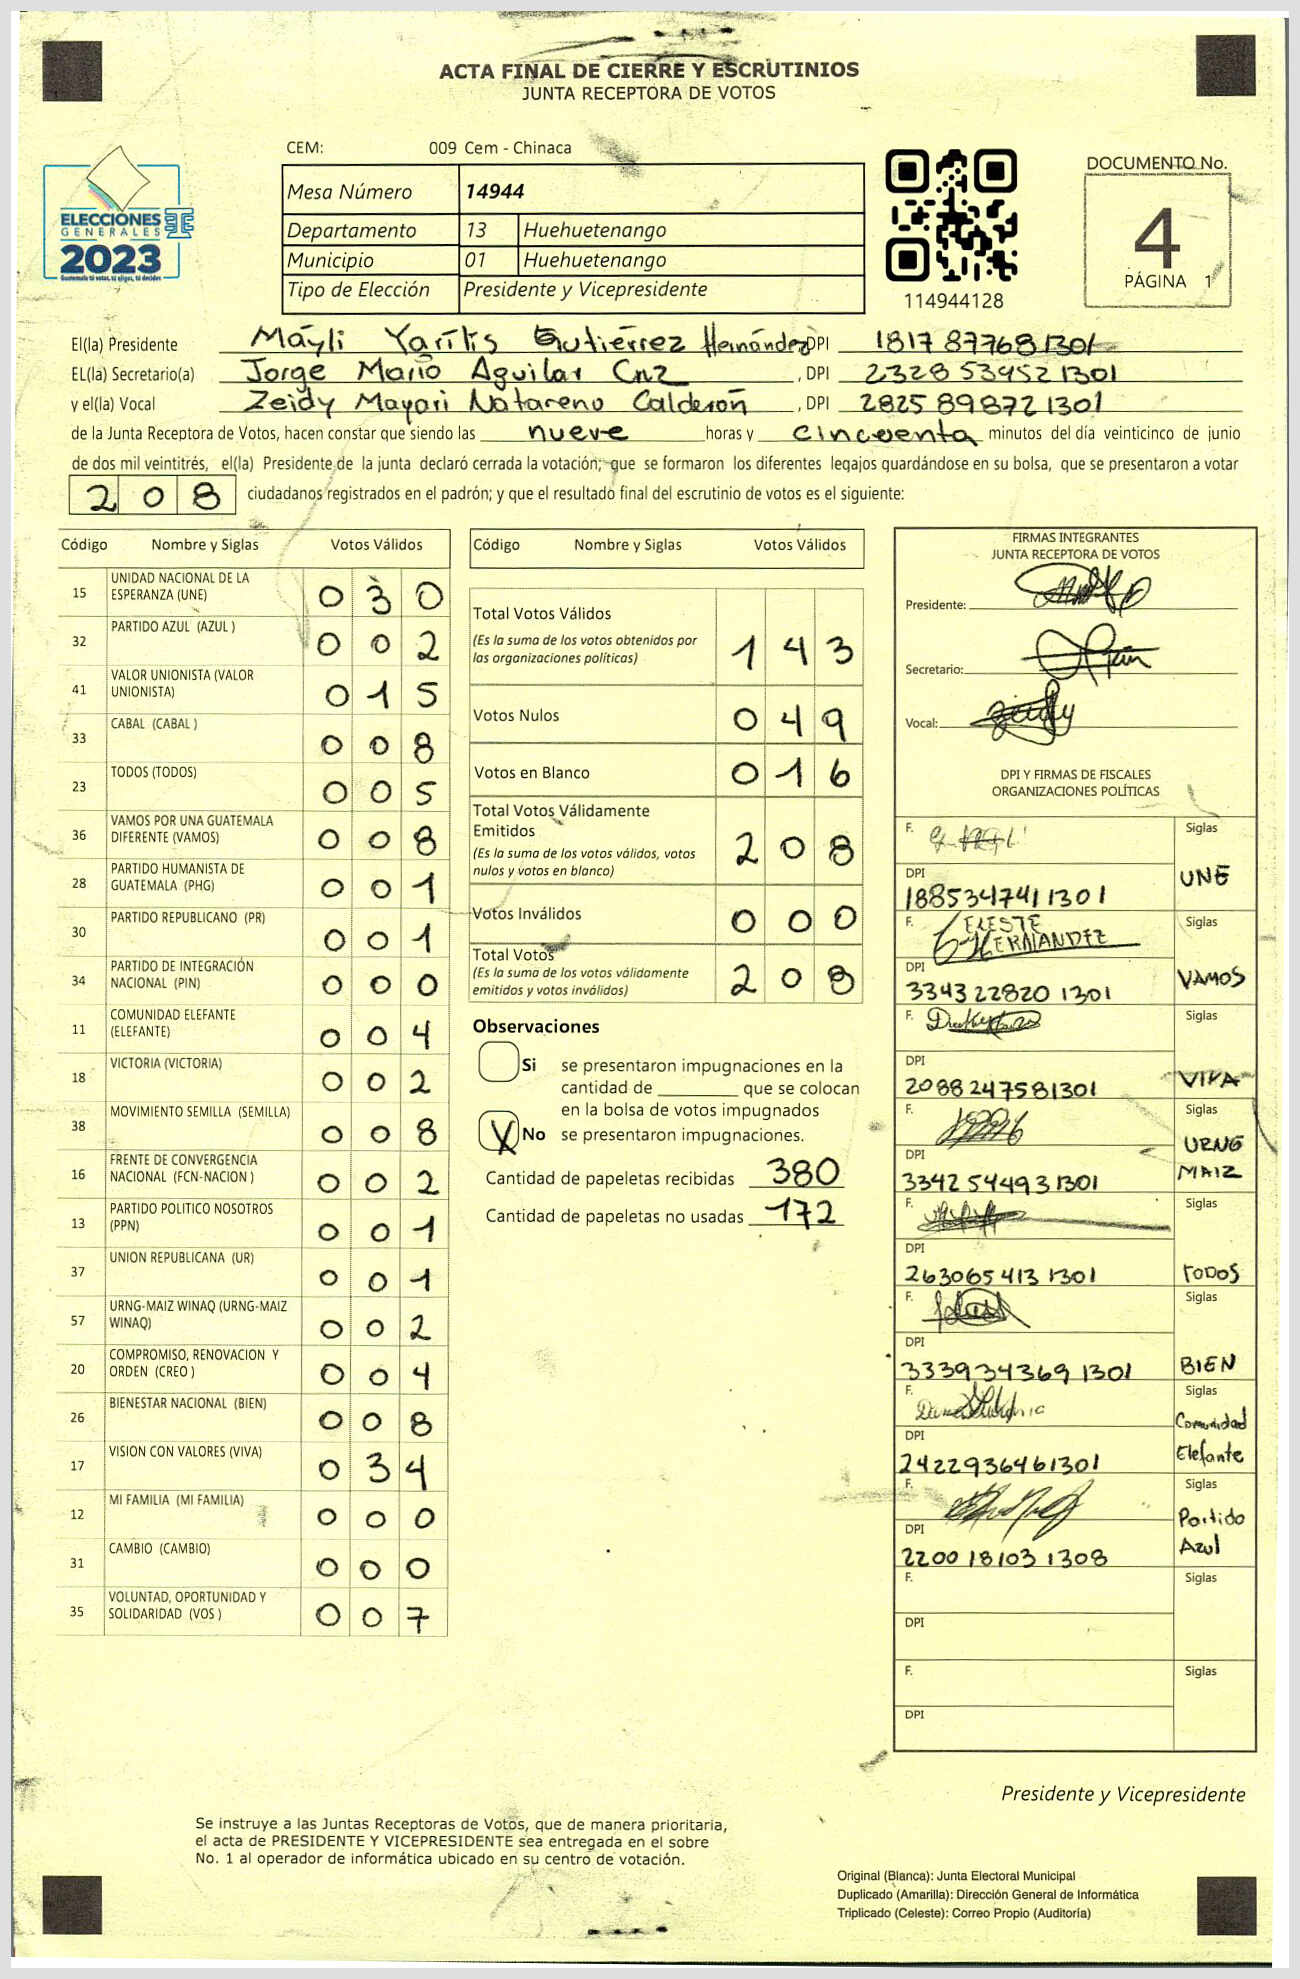 ACTA FINAL DE CIERRE Y ESCRUTINIOS
JUNTA RECEPTORA DE VOTOS
CEM: 009 Cem - Chinaca
ELECCIONES
GENERALES
2023
Guatemala tú votas, tú eliges, tú decides
Mesa Número 14944
Departamento 13 Huehuetenango
Municipio 01 Huehuetenango
Tipo de Elección Presidente y Vicepresidente
114944128
DOCUMENTO No.
4
PÁGINA 1
El(la) Presidente Mayli Yaritis Gutiérrez Hernández DPI 1817 87768 1301
EL(la) Secretario(a) Jorge Mario Aguilar Cruz , DPI 2328 53952 1301
y el(la) Vocal Zeidy Mayari Natareno Calderón , DPI 2825 89872 1301
de la Junta Receptora de Votos, hacen constar que siendo las nueve horas y cincuenta minutos del día veinticinco de junio
de dos mil veintitrés, el(la) Presidente de la junta declaró cerrada la votación; que se formaron los diferentes legajos guardándose en su bolsa, que se presentaron a votar
208 ciudadanos registrados en el padrón; y que el resultado final del escrutinio de votos es el siguiente:
Código Nombre y Siglas Votos Válidos
15 UNIDAD NACIONAL DE LA ESPERANZA (UNE) 0 3 0
32 PARTIDO AZUL (AZUL ) 0 0 2
41 VALOR UNIONISTA (VALOR UNIONISTA) 0 1 5
33 CABAL (CABAL ) 0 0 8
23 TODOS (TODOS) 0 0 5
36 VAMOS POR UNA GUATEMALA DIFERENTE (VAMOS) 0 0 8
28 PARTIDO HUMANISTA DE GUATEMALA (PHG) 0 0 1
30 PARTIDO REPUBLICANO (PR) 0 0 1
34 PARTIDO DE INTEGRACIÓN NACIONAL (PIN) 0 0 0
11 COMUNIDAD ELEFANTE (ELEFANTE) 0 0 4
18 VICTORIA (VICTORIA) 0 0 2
38 MOVIMIENTO SEMILLA (SEMILLA) 0 0 8
16 FRENTE DE CONVERGENCIA NACIONAL (FCN-NACION ) 0 0 2
13 PARTIDO POLITICO NOSOTROS (PPN) 0 0 1
37 UNION REPUBLICANA (UR) 0 0 1
57 URNG-MAIZ WINAQ (URNG-MAIZ WINAQ) 0 0 2
20 COMPROMISO, RENOVACION Y ORDEN (CREO ) 0 0 4
26 BIENESTAR NACIONAL (BIEN) 0 0 8
17 VISION CON VALORES (VIVA) 0 3 4
12 MI FAMILIA (MI FAMILIA) 0 0 0
31 CAMBIO (CAMBIO) 0 0 0
35 VOLUNTAD, OPORTUNIDAD Y SOLIDARIDAD (VOS ) 0 0 7
Código Nombre y Siglas Votos Válidos
Total Votos Válidos 1 4 3
(Es la suma de los votos obtenidos por
las organizaciones políticas)
Votos Nulos 0 4 9
Votos en Blanco 0 1 6
Total Votos Válidamente
Emitidos 2 0 8
(Es la suma de los votos válidos, votos
nulos y votos en blanco)
Votos Inválidos 0 0 0
Total Votos 2 0 8
(Es la suma de los votos válidamente
emitidos y votos inválidos)
Observaciones
Si se presentaron impugnaciones en la
cantidad de ________ que se colocan
en la bolsa de votos impugnados
X No se presentaron impugnaciones.
Cantidad de papeletas recibidas 380
Cantidad de papeletas no usadas 172
FIRMAS INTEGRANTES
JUNTA RECEPTORA DE VOTOS
Presidente:
Secretario:
Vocal:
DPI Y FIRMAS DE FISCALES
ORGANIZACIONES POLÍTICAS
F. Siglas
DPI UNE
188534741 1301
F. CELESTE HERNANDEZ Siglas
DPI VAMOS
334322820 1301
F. Siglas
DPI VIVA
2088247581301
F. Siglas
DPI URNG MAIZ
3342 54493 1301
F. Siglas
DPI TODOS
263065413 1301
F. Siglas
DPI BIEN
333934369 1301
F. Siglas
DPI Comunidad Elefante
2422936461301
F. Siglas
DPI Partido Azul
2200 18103 1308
F. Siglas
DPI
F. Siglas
DPI
Presidente y Vicepresidente
Se instruye a las Juntas Receptoras de Votos, que de manera prioritaria,
el acta de PRESIDENTE Y VICEPRESIDENTE sea entregada en el sobre
No. 1 al operador de informática ubicado en su centro de votación.
Original (Blanca): Junta Electoral Municipal
Duplicado (Amarilla): Dirección General de Informática
Triplicado (Celeste): Correo Propio (Auditoría)